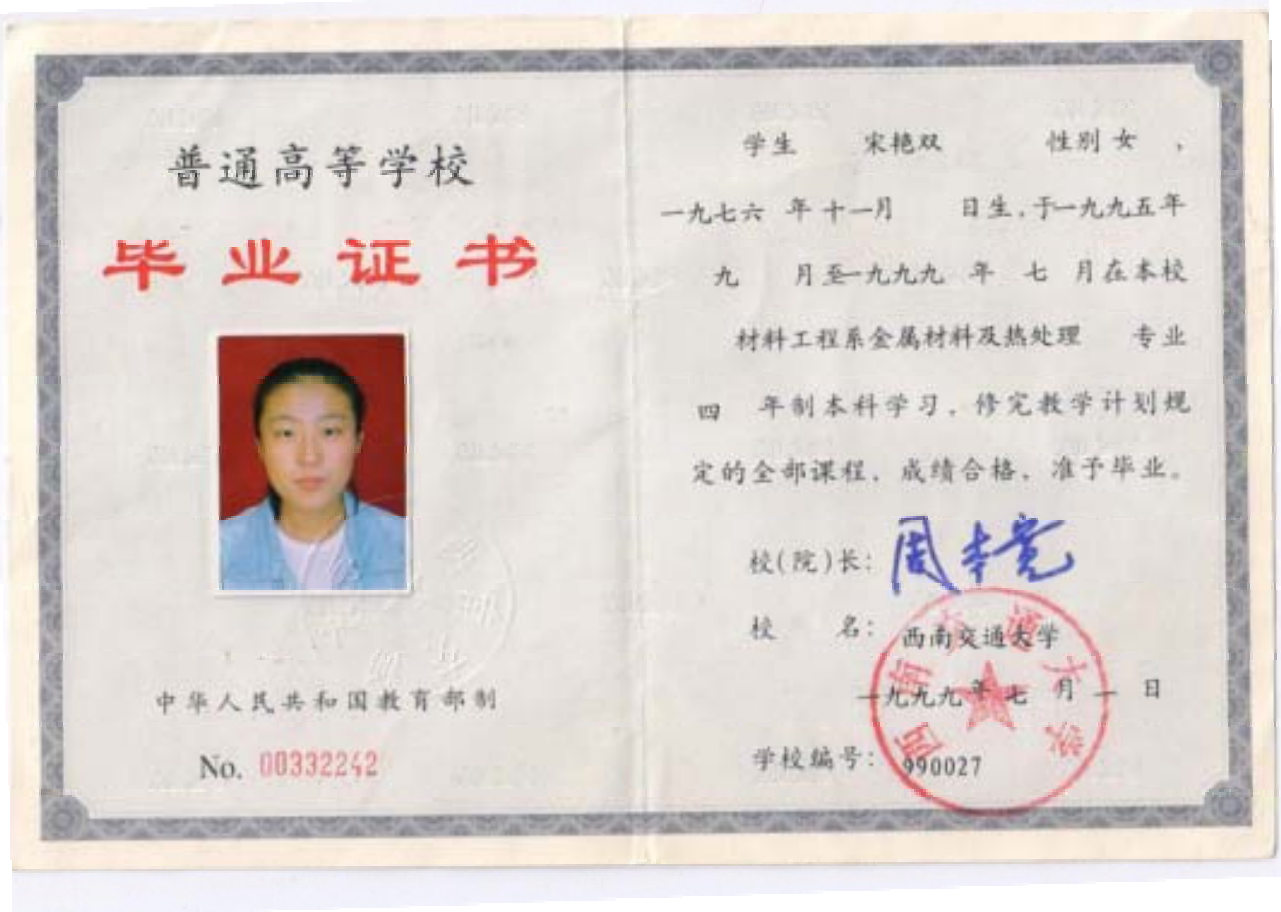 普通高等学校
毕业证书
中华人民共和国教育部制
No. 00332242
学生 宋艳双 性别 女 ，
一九七六 年 十一月 日生，于一九九五年
九 月至一九九九 年 七 月在本校
材料工程系金属材料及热处理 专业
四 年制本科学习，修完教学计划规
定的全部课程，成绩合格，准予毕业。
校(院)长：
校 名： 西南交通大学
一九九九年 七 月 一 日
学校编号： 990027
西南交通大学